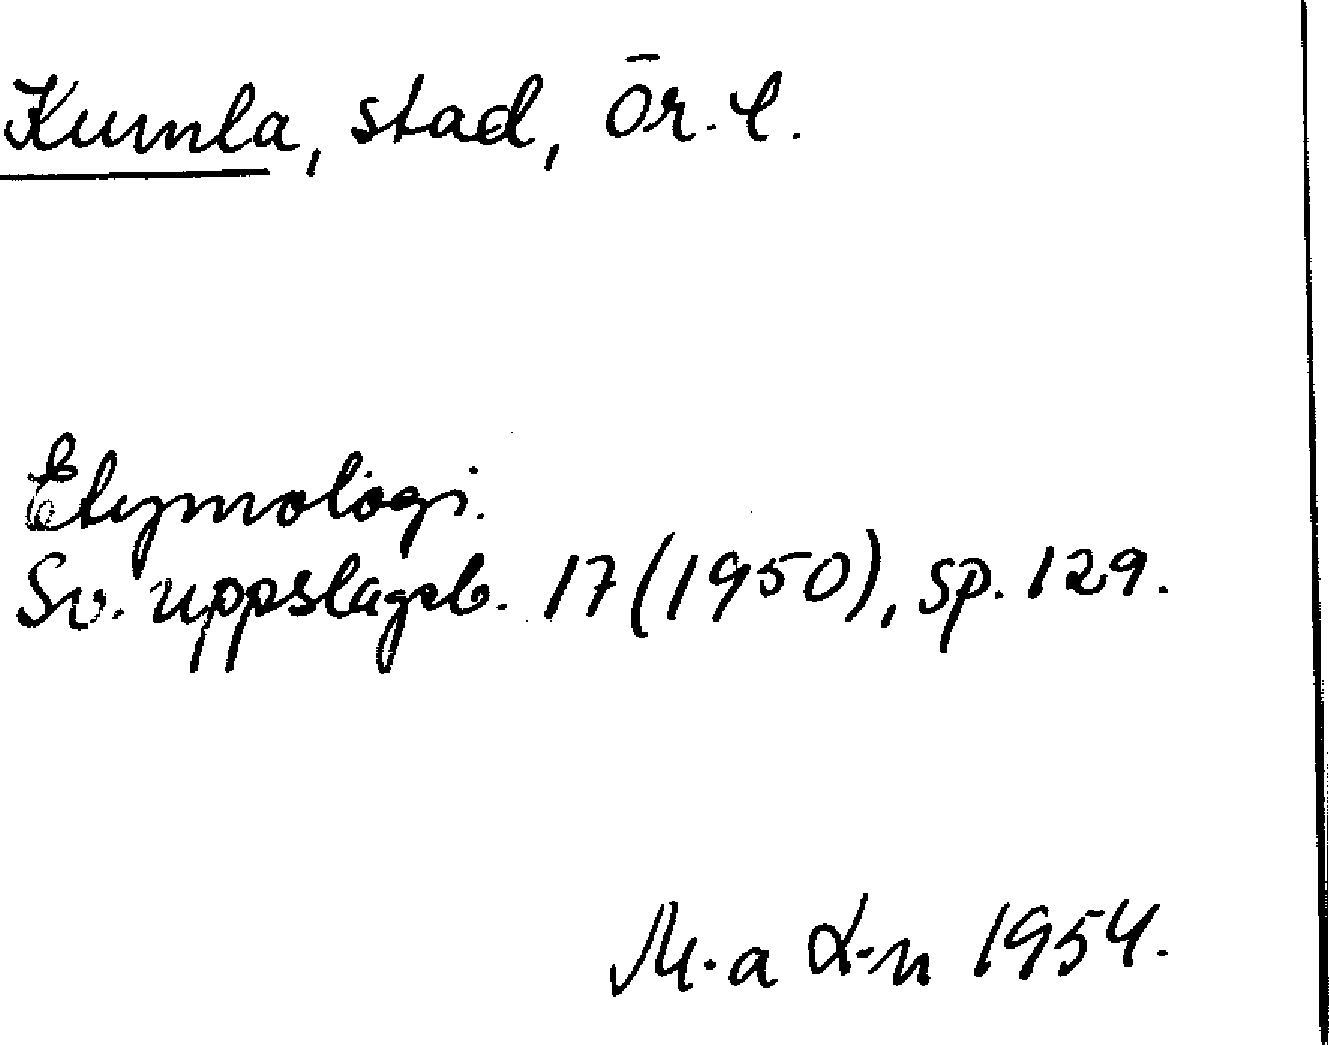 Kumla, stad, Ör. l.
Etymologi.
Sv. uppslagsb. 17 (1950), sp. 129.
M-a L-n 1954.